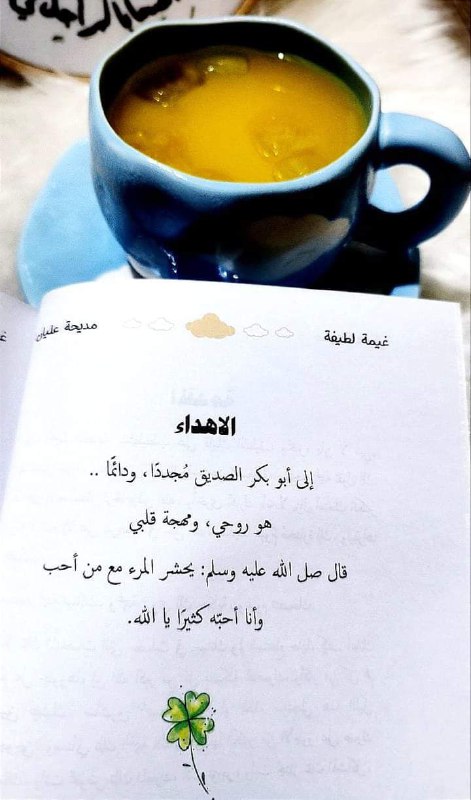 غيمة لطيفة
مديحة عليان
الاهداء
إلى أبو بكر الصديق مُجددًا، ودائمًا ..
هو روحي، ومهجة قلبي
قال صل الله عليه وسلم: يحشر المرء مع من أحب
وأنا أحبّه كثيرًا يا الله.